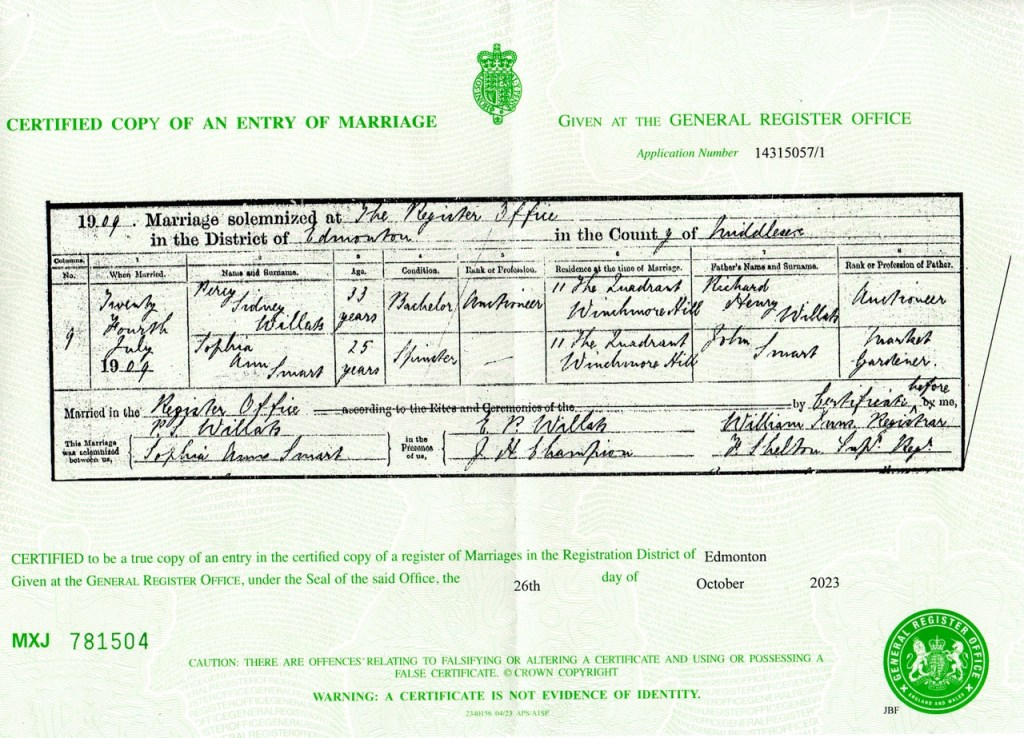 CERTIFIED COPY OF AN ENTRY OF MARRIAGE
GIVEN AT THE GENERAL REGISTER OFFICE
Application Number 14315057/1
1909. Marriage solemnized at The Register Office
in the District of Edmonton in the County of Middlesex
Columns. 1 2 3 4 5 6 7 8
No. When Married. Name and Surname. Age. Condition. Rank or Profession. Residence at the time of Marriage. Father's Name and Surname. Rank or Profession of Father.
9
Twenty
Fourth
July
1909
Percy
Sidney
Willats
33
years
Bachelor
Auctioneer
11 The Quadrant
Winchmore Hill
Richard
Henry
Willats
Auctioneer
Sophia
Ann
Smart
25
years
Spinster
—
11 The Quadrant
Winchmore Hill
John
Smart
Market
Gardener.
Married in the Register Office according to the Rites and Ceremonies of the by Certificate before by me,
This Marriage
was solemnized
between us,
P. S. Willats
Sophia Anne Smart
in the
Presence
of us,
E. P. Willats
J. H. Champion
William Registrar
F. Shelton Supt. Regr.
CERTIFIED to be a true copy of an entry in the certified copy of a register of Marriages in the Registration District of Edmonton
Given at the GENERAL REGISTER OFFICE, under the Seal of the said Office, the 26th day of October 2023
MXJ 781504
CAUTION: THERE ARE OFFENCES RELATING TO FALSIFYING OR ALTERING A CERTIFICATE AND USING OR POSSESSING A
FALSE CERTIFICATE. © CROWN COPYRIGHT
WARNING: A CERTIFICATE IS NOT EVIDENCE OF IDENTITY.
GENERAL REGISTER OFFICE
ENGLAND AND WALES
JBF